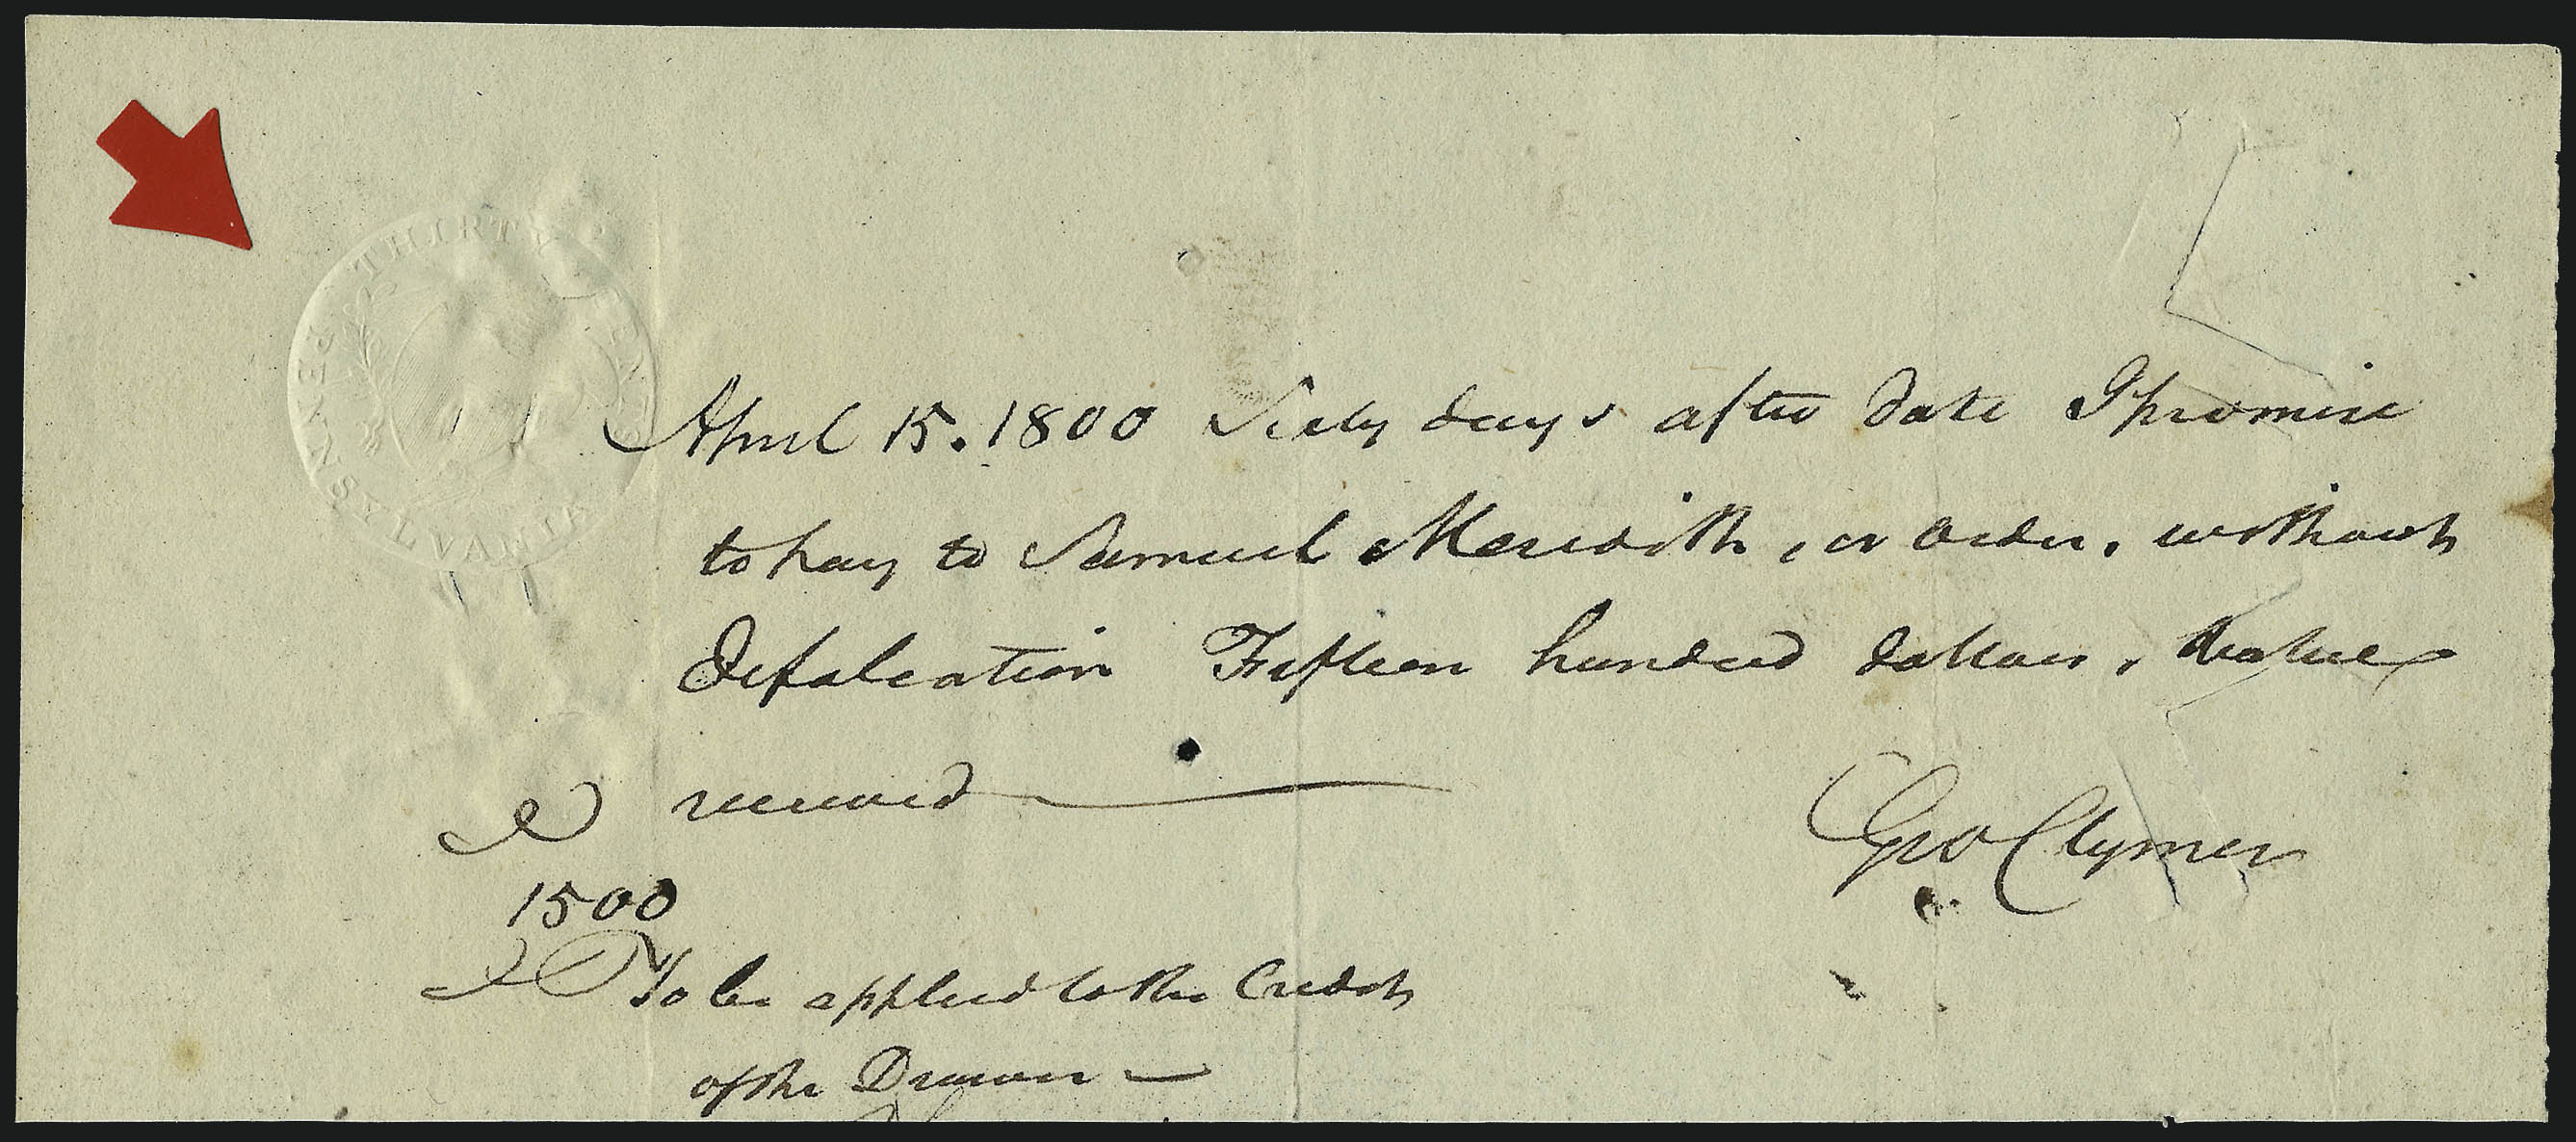 THIRTY CENTS
PENNSYLVANIA
April 15. 1800 Sixty days after date I promise
to pay to Samuel Meredith, or order, without
Defalcation Fifteen hundred dollars, Value
received
Geo Clymer
1500
To be applied to the Credit
of the Drawer —